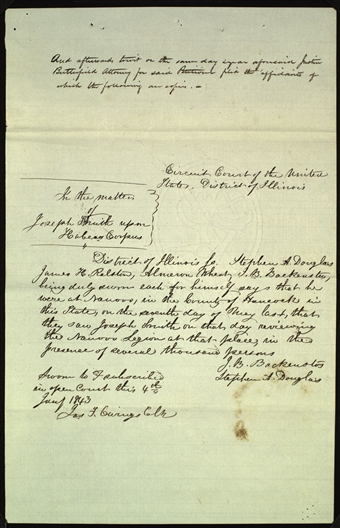 And afterwards towit on the same day & year aforesaid Justin
Butterfield Attorney for said Petitioner filed the affidavits of
which the following are copies. –
Circuit Court of the United
States, District of Illinois
In the matter
of
Joseph Smith upon
Habeas Corpus
District of Illinois Ss. Stephen A. Douglass
James H. Ralston, Almeron Wheat, J. B. Backenstos,
being duly sworn each for himself say that he
were at Nauvoo, in the County of Hancock in
this State, on the seventh day of May last, that
they saw Joseph Smith on that day reviewing
the Nauvoo Legion at that place, in the
presence of several thousand persons
J. B. Backenstos
Stephen A. Douglass
Sworn to & subscribed
in open Court this 4th
Jany 1843
Jas F. Owings Clk